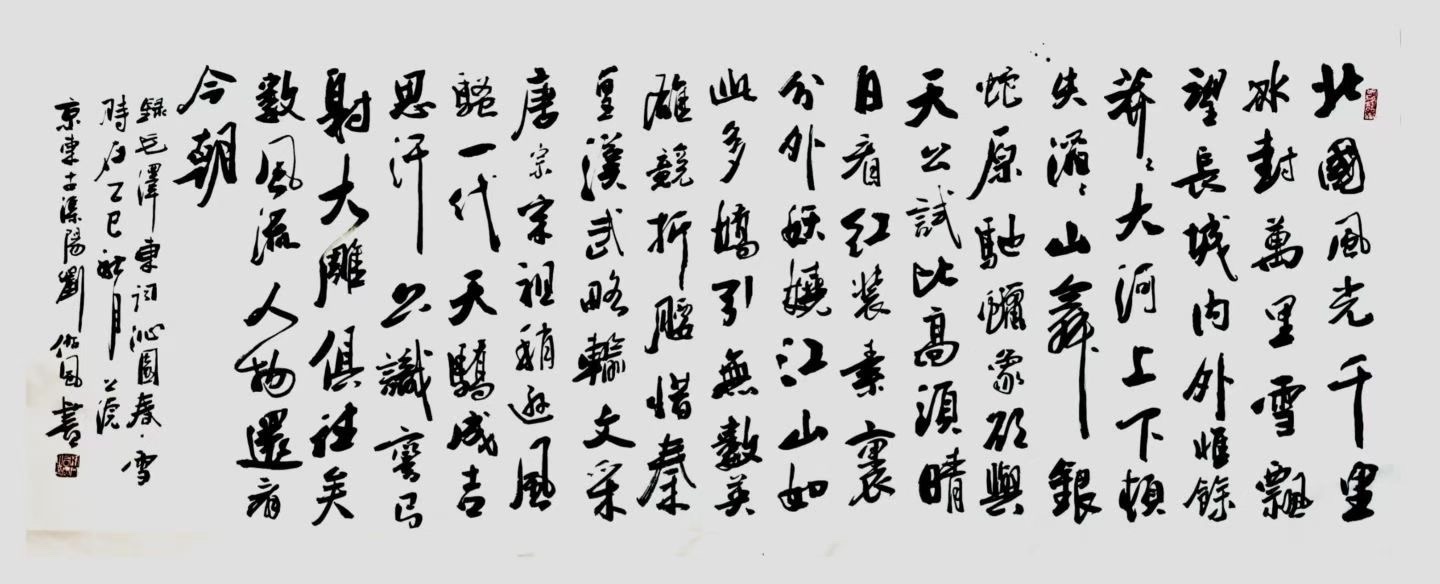 北國風光千里
冰封萬里雪飄
望長城内外惟餘
莽〻大河上下頓
失滔〻山舞銀
蛇原馳蠟象欲與
天公試比高須晴
日看红裝素裹
分外妖嬈江山如
此多嬌引無數英
雄競折腰惜秦
皇漢武略輸文采
唐宗宋祖稍遜風
騷一代天驕成吉
思汗只識彎弓
射大雕俱往矣
數風流人物還看
今朝
錄毛澤東詞沁園春·雪
時在乙巳秋月
京東古溧陽劉書